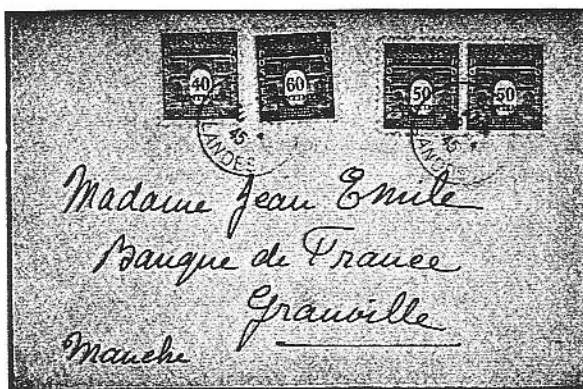 40 60 50 50
45 45
LANDES LANDES
Madame Jean Emile
Banque de France
Granville
Manche